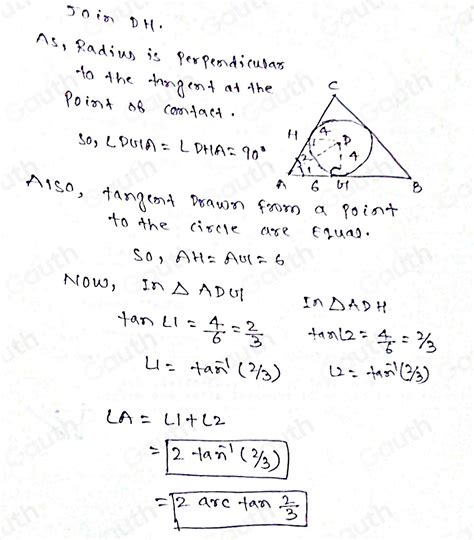 Join DH.
As, Radius is perpendicular
to the tangent at the
Point of contact.
So, ∠DGA = ∠DHA = 90°
C
H
4
D
2
1
4
A
6
G
B
Also, tangent Drawn from a point
to the circle are Equal.
So, AH = AG = 6
Now, In △ ADG
tan ∠1 = 4/6 = 2/3
∠1 = tan⁻¹ (2/3)
In △ADH
tan∠2 = 4/6 = 2/3
∠2 = tan⁻¹(2/3)
∠A = ∠1 + ∠2
= 2 tan⁻¹ (2/3)
= 2 arc tan 2/3
Gauth